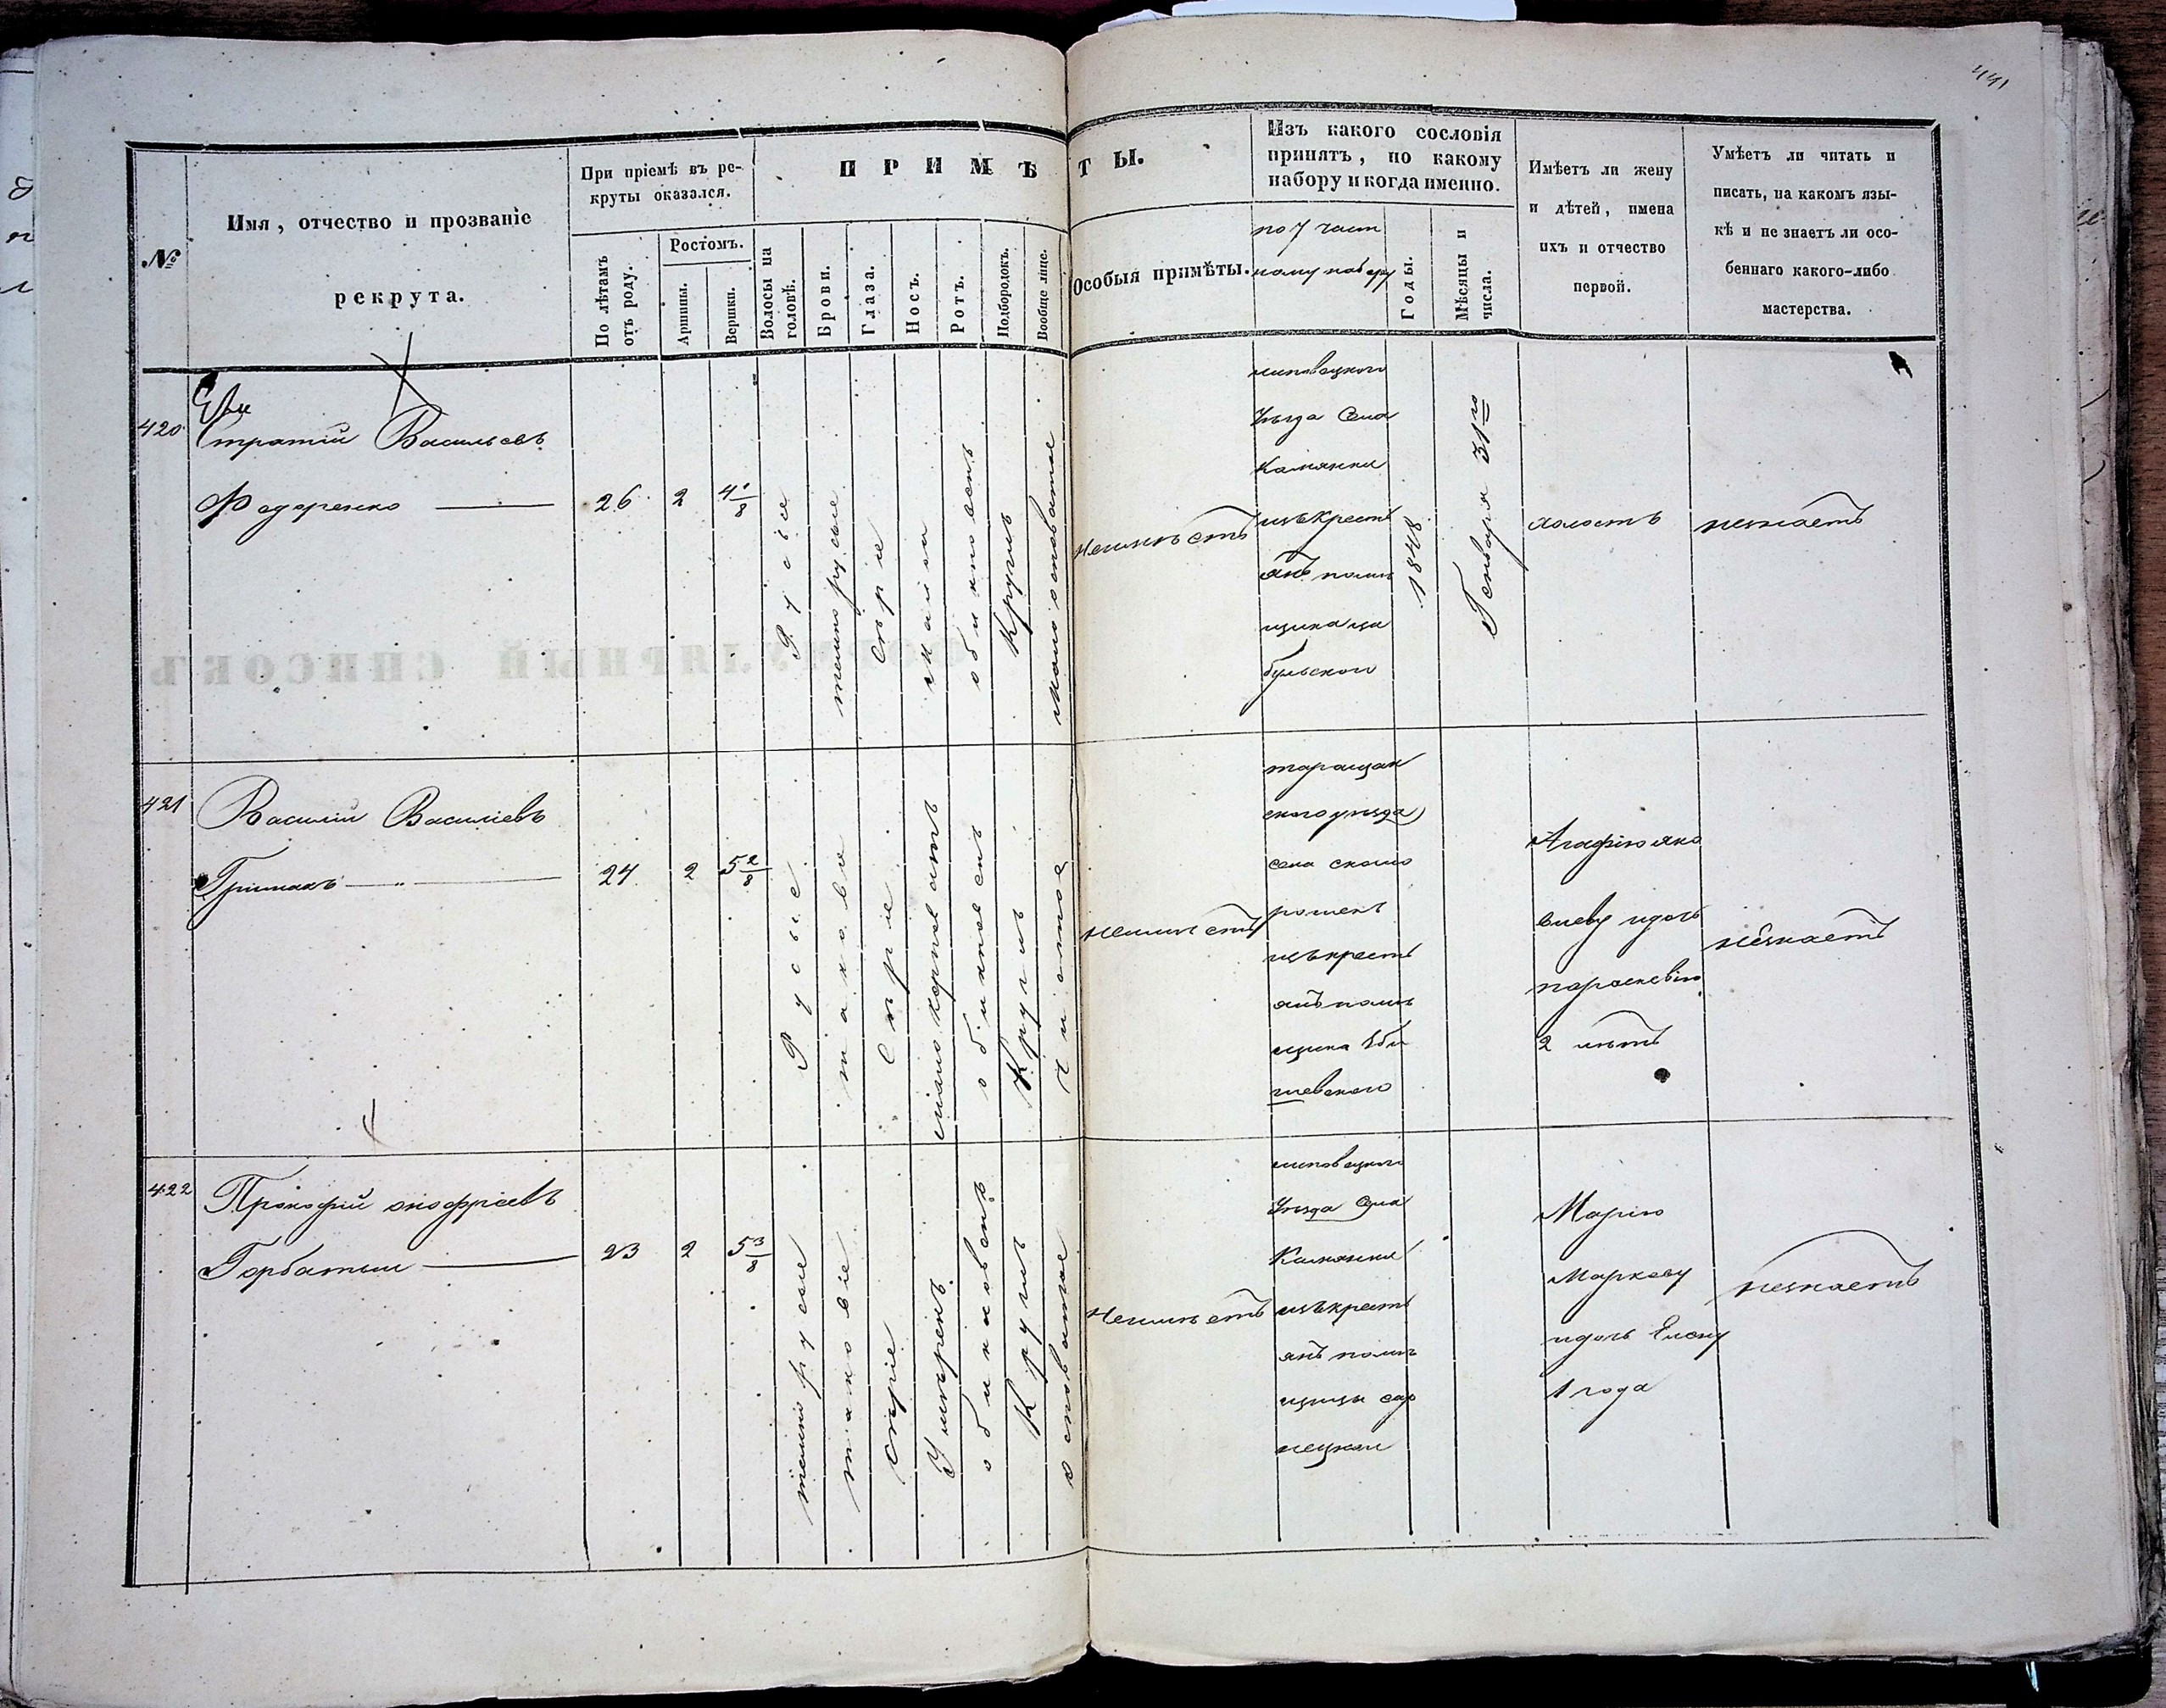 441
№
Имя, отчество и прозваніе
рекрута.
При пріемѣ въ ре-
круты оказался.
По лѣтамъ
отъ роду.
Ростомъ.
Аршины.
Вершки.
ПРИМѢТЫ.
Волосы на
головѣ.
Брови.
Глаза.
Носъ.
Ротъ.
Подбородокъ.
Вообще лице.
Особыя примѣты.
Изъ какого сословія
принятъ, по какому
набору и когда именно.
по 7 част
ному набору
Годы.
Мѣсяцы и
числа.
Имѣетъ ли жену
и дѣтей, имена
ихъ и отчество
первой.
Умѣетъ ли читать и
писать, на какомъ язы-
кѣ и не знаетъ ли осо-
беннаго какого-либо
мастерства.
420
Евс
тратій Васильевъ
Федоренко
26
2
4 1/8
Русіе
темнорусые
Сѣріе
обикновенъ
Круглъ
неимѣетъ
липовецкого
Уѣзда Села
Камянки
изъ крестъ
янъ помѣ
щика
1848
Генваря 31го
холостъ
незнаетъ
421
Василій Василіевъ
Гримакъ
24
2
5 2/8
Русые
таковіе
Сѣріе
обикновенъ
Круглъ
чистое
неимѣетъ
таращан
ского уѣзда
села
изъ крестъ
янъ помѣ
щика
Агафію яко
влеву идочь
параскевію
2 лѣтъ
незнаетъ
422
Прокофій онофріевъ
Горбатый
23
2
5 3/8
темнорусые
таковіе
сѣріе
Умѣренъ
обикновенъ
Круглъ
осповатое
неимѣетъ
липовецкого
Уѣзда Села
Камянки
изъ крестъ
янъ помѣ
щицы
Марію
Маркову
идочь Елену
1 года
незнаетъ